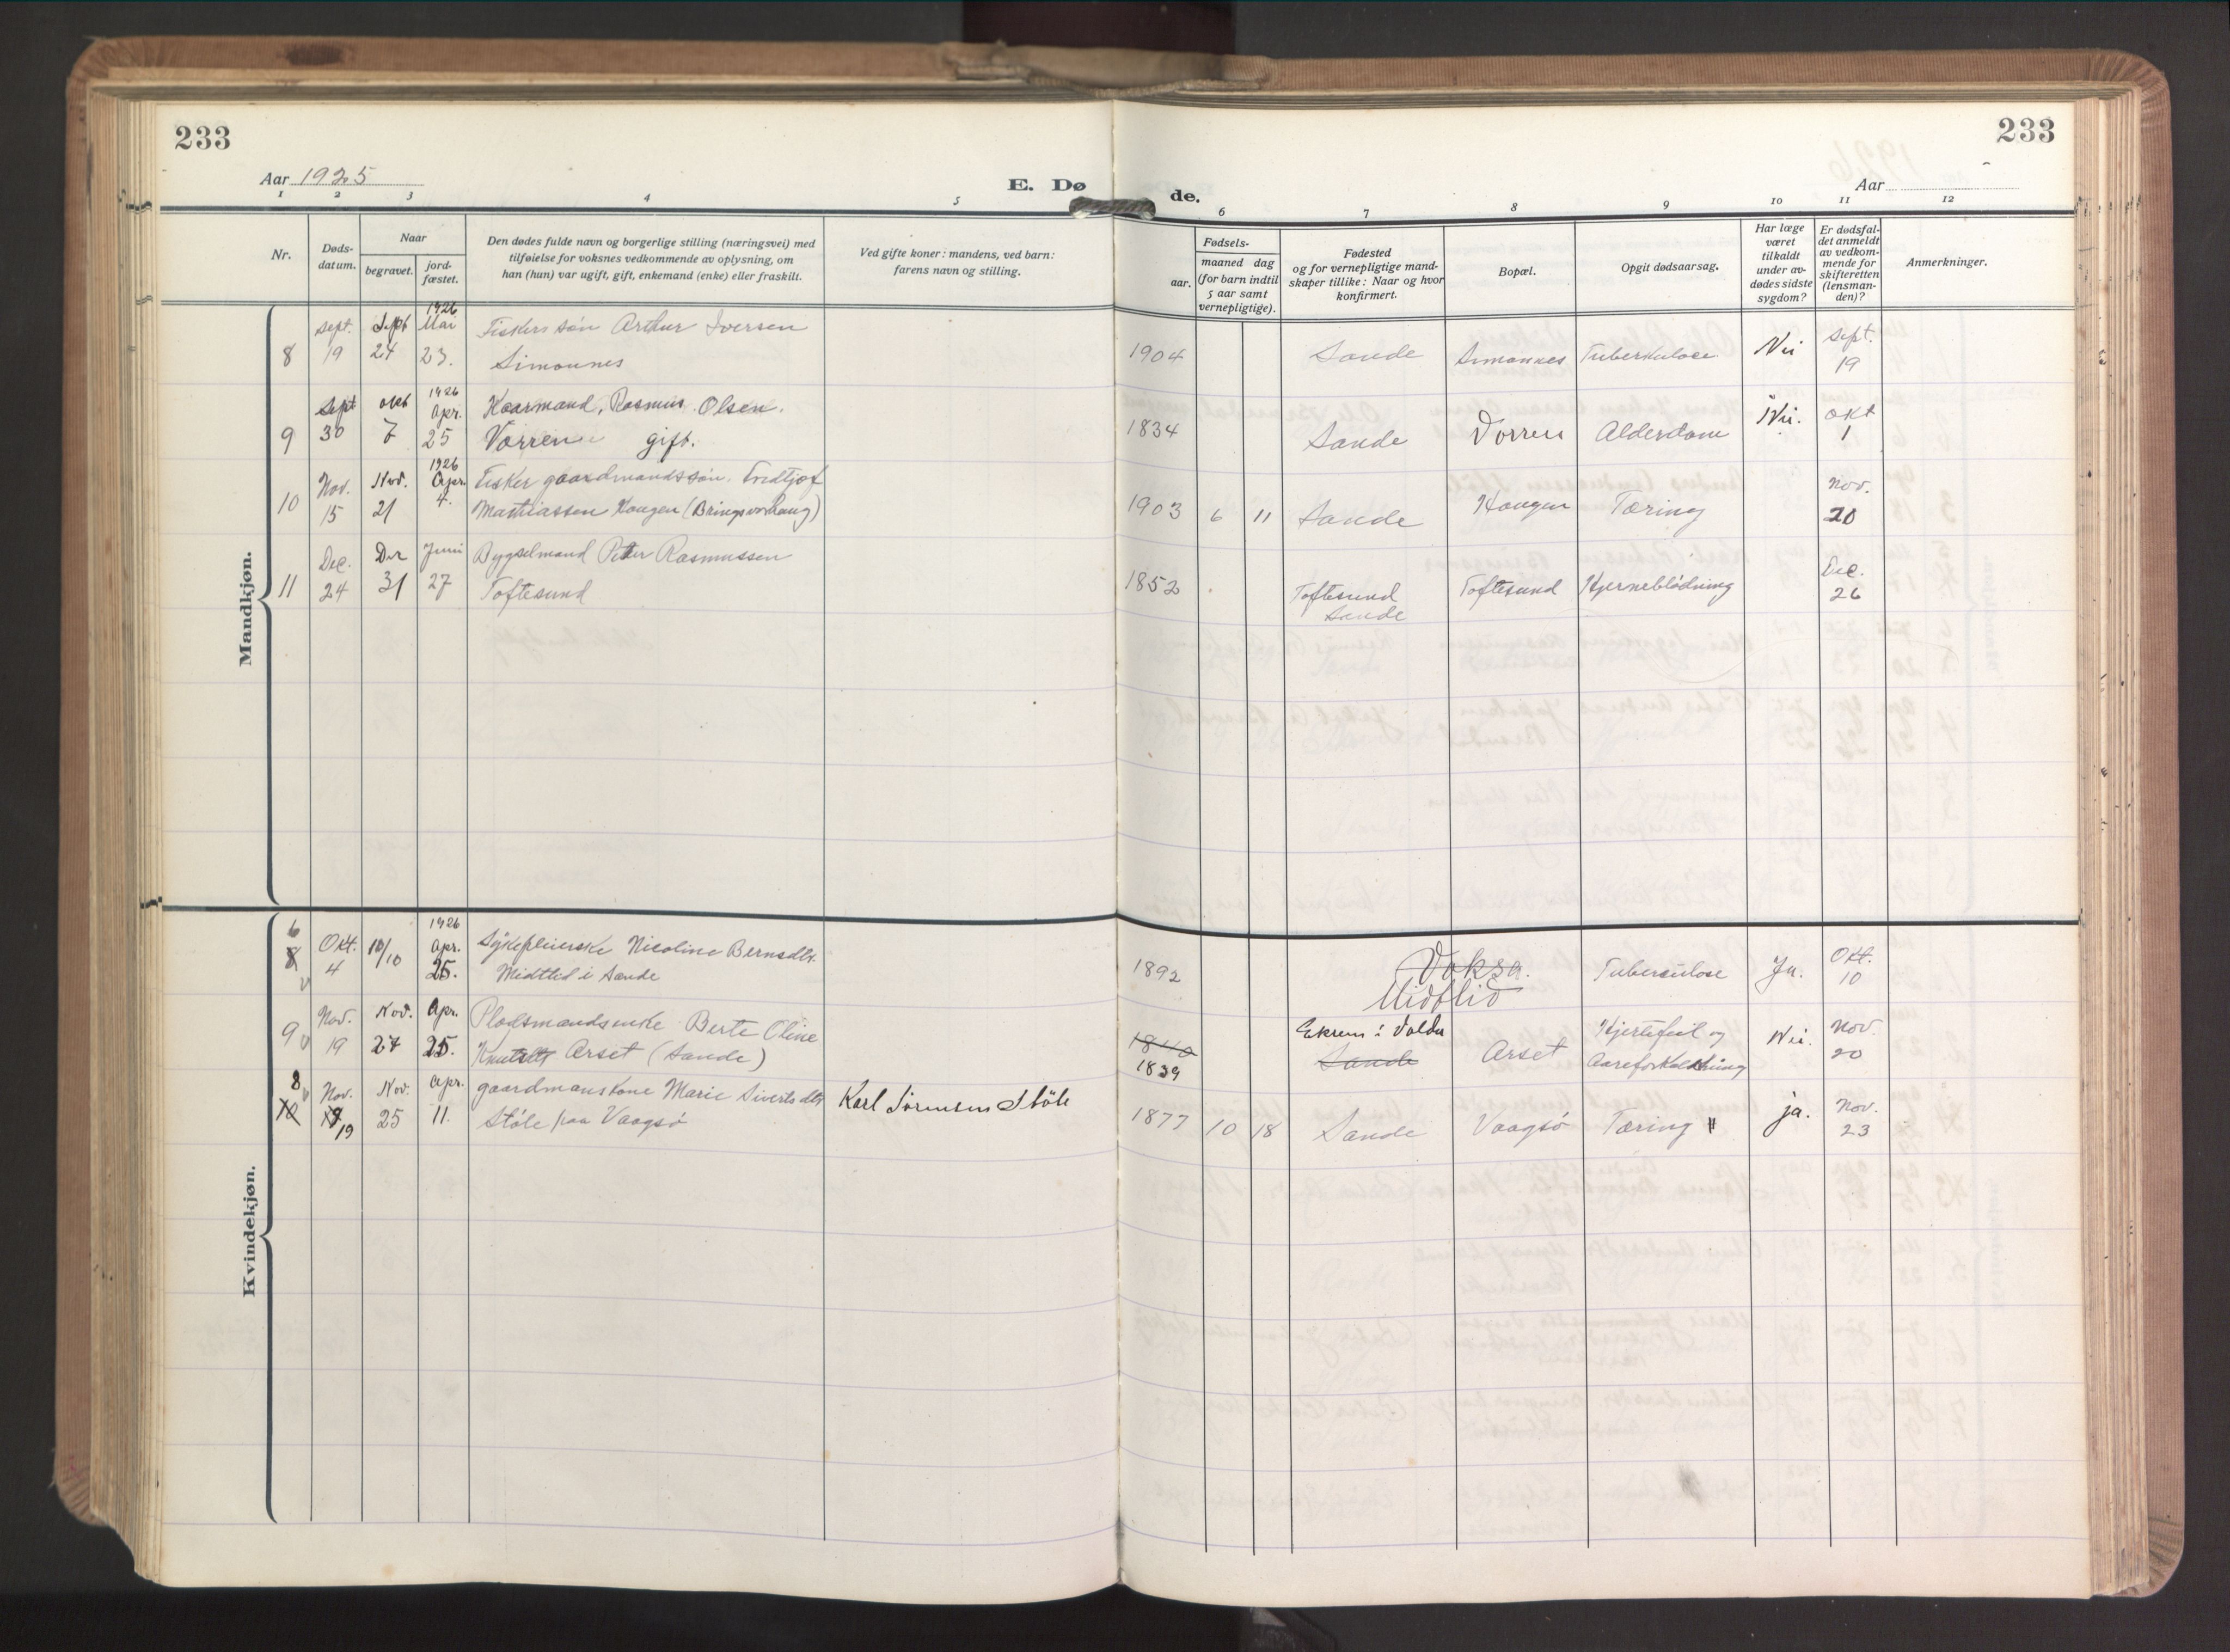 233
233
Aar 1925
E. Dø
de.
Aar
1 2 3 4 5
6 7 8 9 10 11 12
Nr.
Døds-
datum.
Naar
begravet.
jord-
fæstet.
Den dødes fulde navn og borgerlige stilling (næringsvei) med
tilføielse for voksnes vedkommende av oplysning, om
han (hun) var ugift, gift, enkemand (enke) eller fraskilt.
Ved gifte koner: mandens, ved barn:
farens navn og stilling.
Fødsels-
aar.
maaned dag
(for barn indtil
5 aar samt
vernepligtige).
Fødested
og for vernepligtige mand-
skaper tillike: Naar og hvor
konfirmert.
Bopæl.
Opgit dødsaarsag.
Har læge
været
tilkaldt
under av-
dødes sidste
sygdom?
Er dødsfal-
det anmeldt
av vedkom-
mende for
skifteretten
(lensman-
den)?
Anmerkninger.
Mandkjøn.
1926
Sept. Sept Mai Fiskers søn Arthur Iversen
8 19 24 23. Simonnes
1904 Sande Simonnes Tuberkulose Nei Sept.
19
1926
Sept okt Apr. Kaarmand, Rasmus Olsen.
9 30 7 25 Vorren gift.
1834 Sande Vorren Alderdom Nei. Okt
1
1926
Nov. Nov. Apr. Fisker gaardmandssøn. Fridtjof
10 15 21 4. Mathiassen Haugen (Bringsvorhaug)
1903 6 11 Sande Haugen Tæring Nov.
20
Dec. Juni Bygselmand Peter Rasmussen
11 24 31 27 Toftesund
1852 Toftesund Toftesund Hjerneblödning Dec.
Sande 26
Kvindekjøn.
6 1926
8 Okt. 10/10 Apr. Sykepleierske Nicoline Bernsdtr.
4 25. Midtlid i Sande
1892 Voksa. Tuberculose Ja. Okt.
Midtlid 10
Nov. Nov. Apr. Pladsmandsenke Berte Oline
9 19 27 25. Knutsdtr Arset (Sande)
1840 Ekrem i Volden Arset Hjertefeil og Nei. Nov.
1839 Sande Aareforkalkning 20
8 Nov. Nov. Apr. gaardmanskone Marie Sivertsdtr
10 19 25 11. Støle paa Vaagsø
Karl Sörensen Stöle
1877 10 18 Sande Vaagsö Tæring ja. Nov.
23